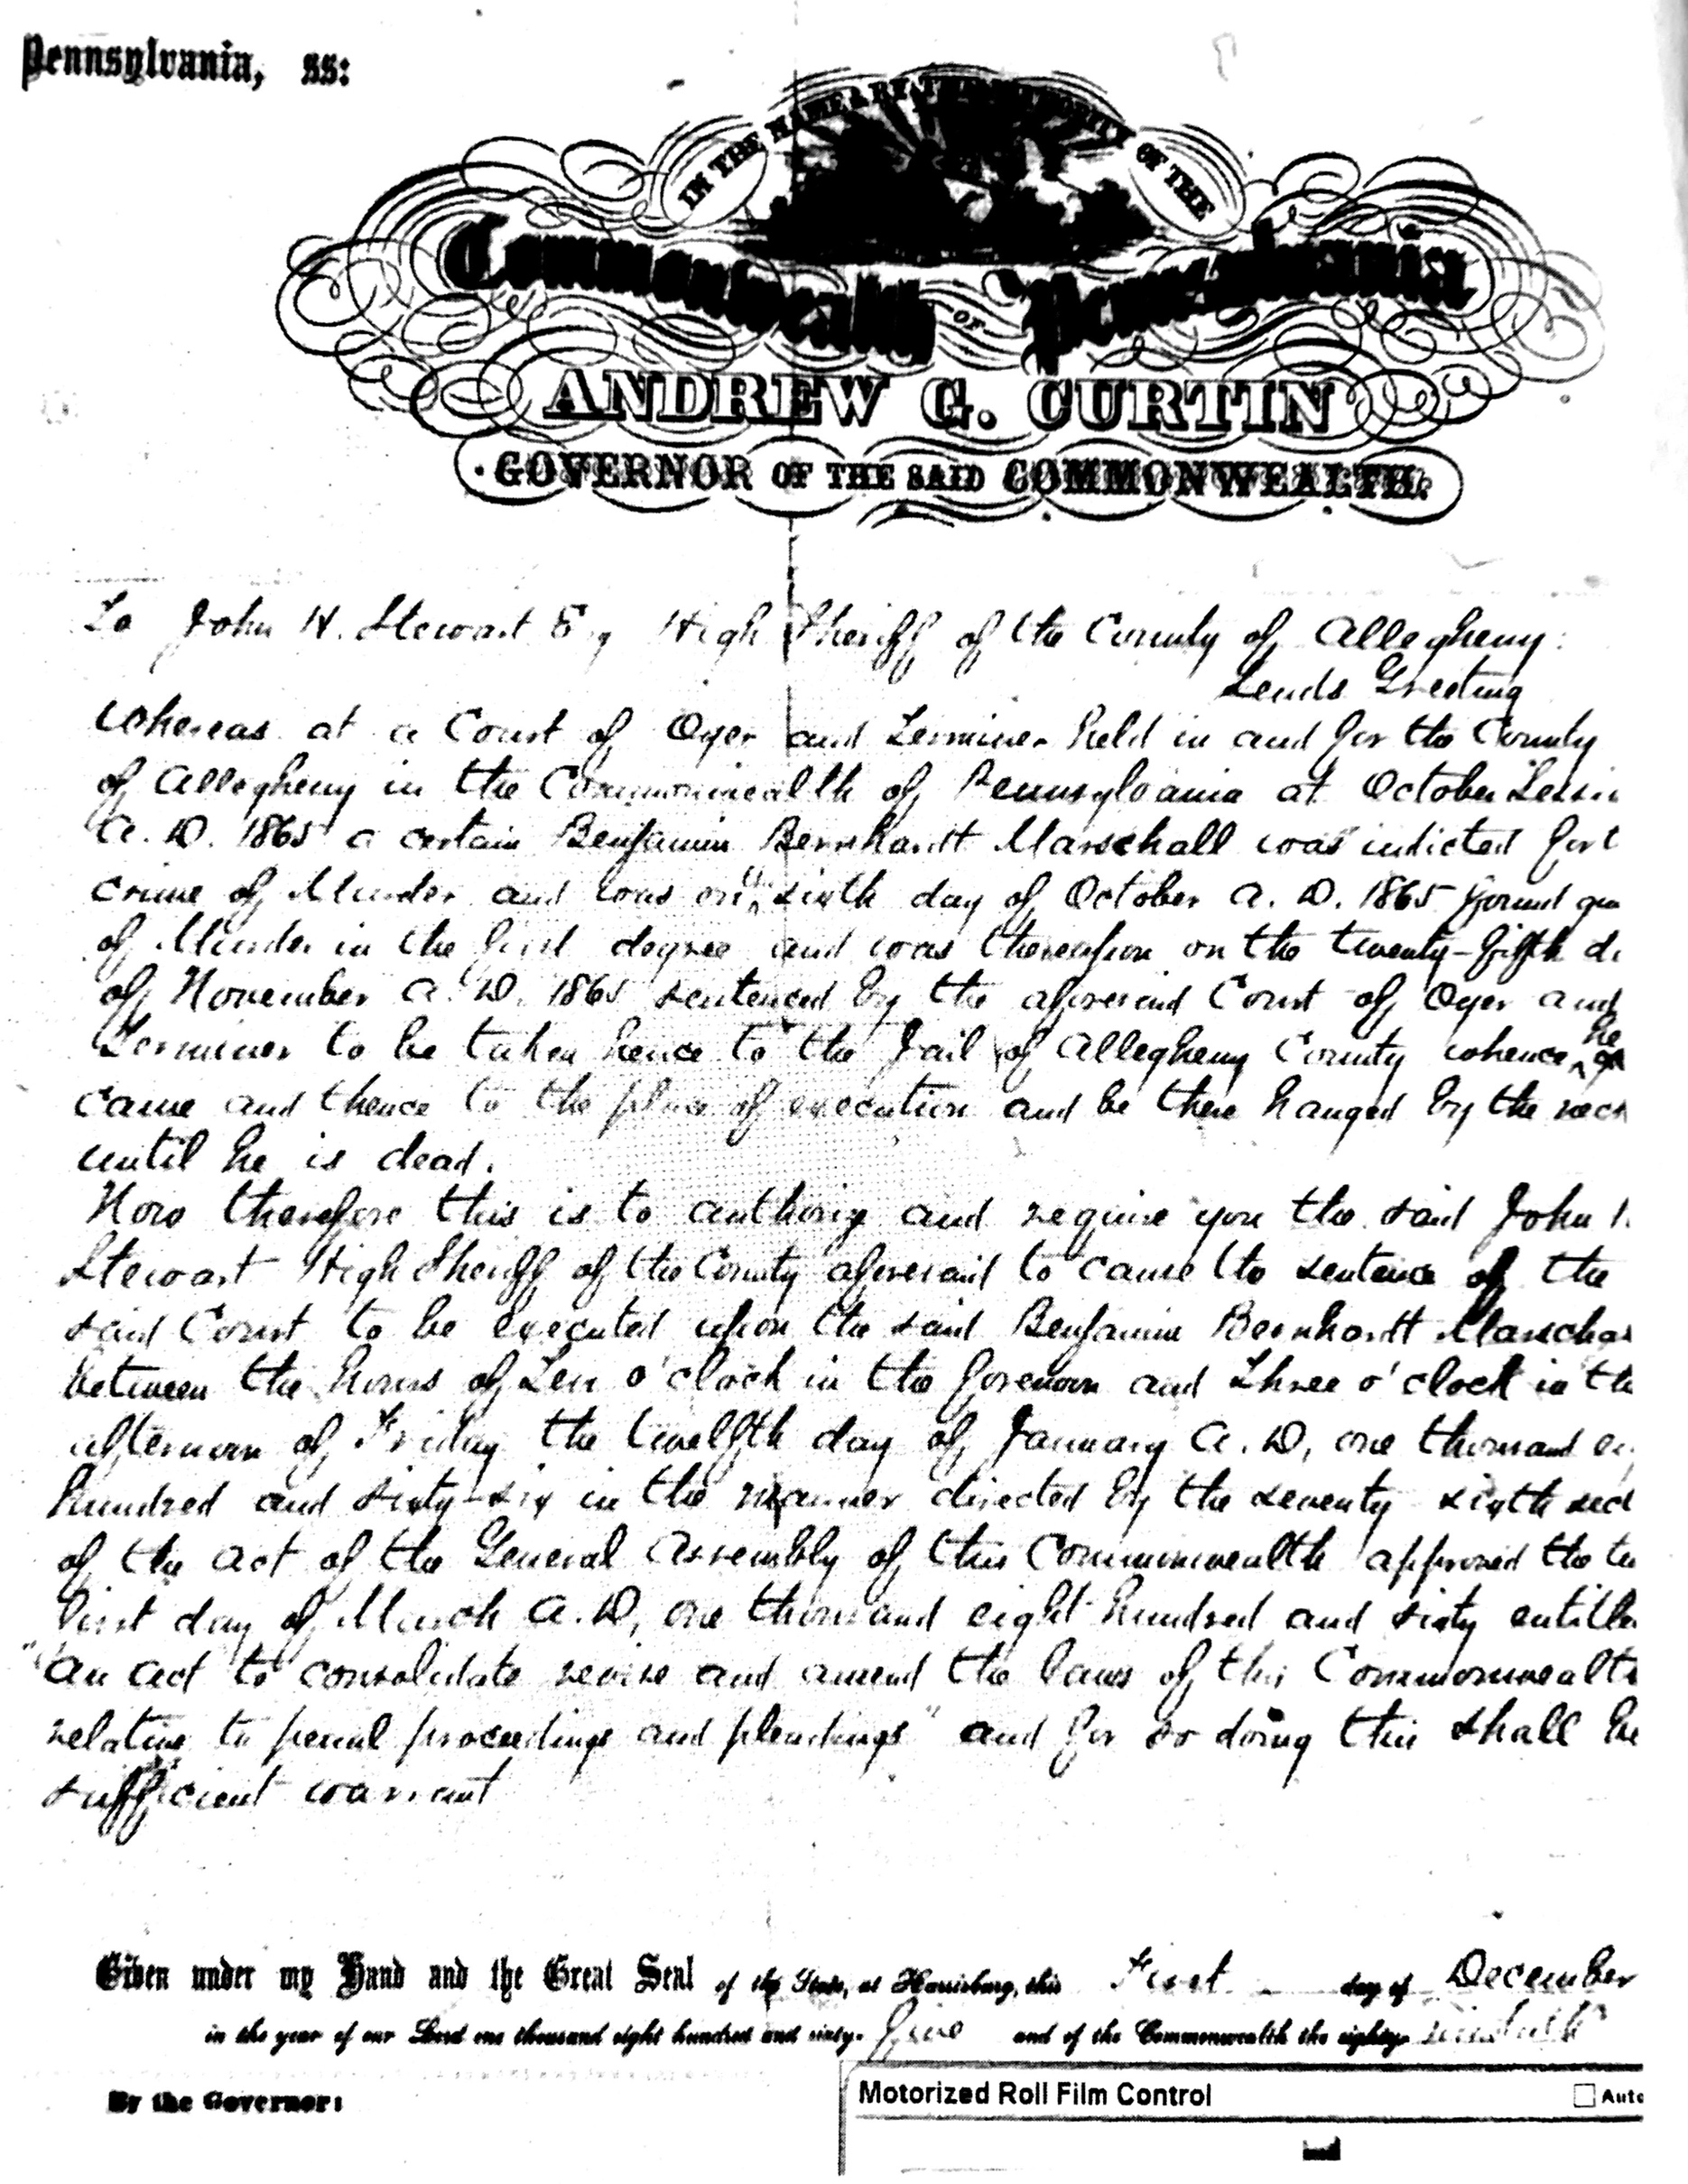 Pennsylvania, ss:
IN THE NAME & BY THE AUTHORITY OF THE
Commonwealth OF Pennsylvania
ANDREW G. CURTIN
GOVERNOR OF THE SAID COMMONWEALTH.
To John H. Stewart Esq High Sheriff of the County of Allegheny:
Sends Greeting
Whereas at a Court of Oyer and Terminer held in and for the County
of Allegheny in the Commonwealth of Pennsylvania at October Sessio
A. D. 1865 a certain Benjamin Bernhardt Marschall was indicted for t
crime of Murder and was on the sixth day of October A. D. 1865 found gu
of Murder in the first degree and was thereupon on the twenty-fifth da
of November A. D. 1865 sentenced by the aforesaid Court of Oyer and
Terminer to be taken hence to the Jail of Allegheny County whence he
came and thence to the place of execution and be there hanged by the neck
until he is dead.
Now therefore this is to authorize and require you the said John H.
Stewart High Sheriff of the County aforesaid to cause the sentence of the
said Court to be executed upon the said Benjamin Bernhardt Marschal
between the hours of Ten o'clock in the forenoon and Three o'clock in the
afternoon of Friday the twelfth day of January A. D, one thousand ei
hundred and sixty-six in the manner directed by the seventy sixth sect
of the act of the General Assembly of this Commonwealth approved the th
first day of March A. D, one thousand eight hundred and sixty entitle
"An act to consolidate revise and amend the laws of this Commonwealth
relative to penal proceedings and pleadings" and for so doing this shall be
sufficient warrant
Given under my Hand and the Great Seal of the State, at Harrisburg, this First day of December
in the year of our Lord one thousand eight hundred and sixty-five and of the Commonwealth the eighty-
By the Governor:
Motorized Roll Film Control
Auto